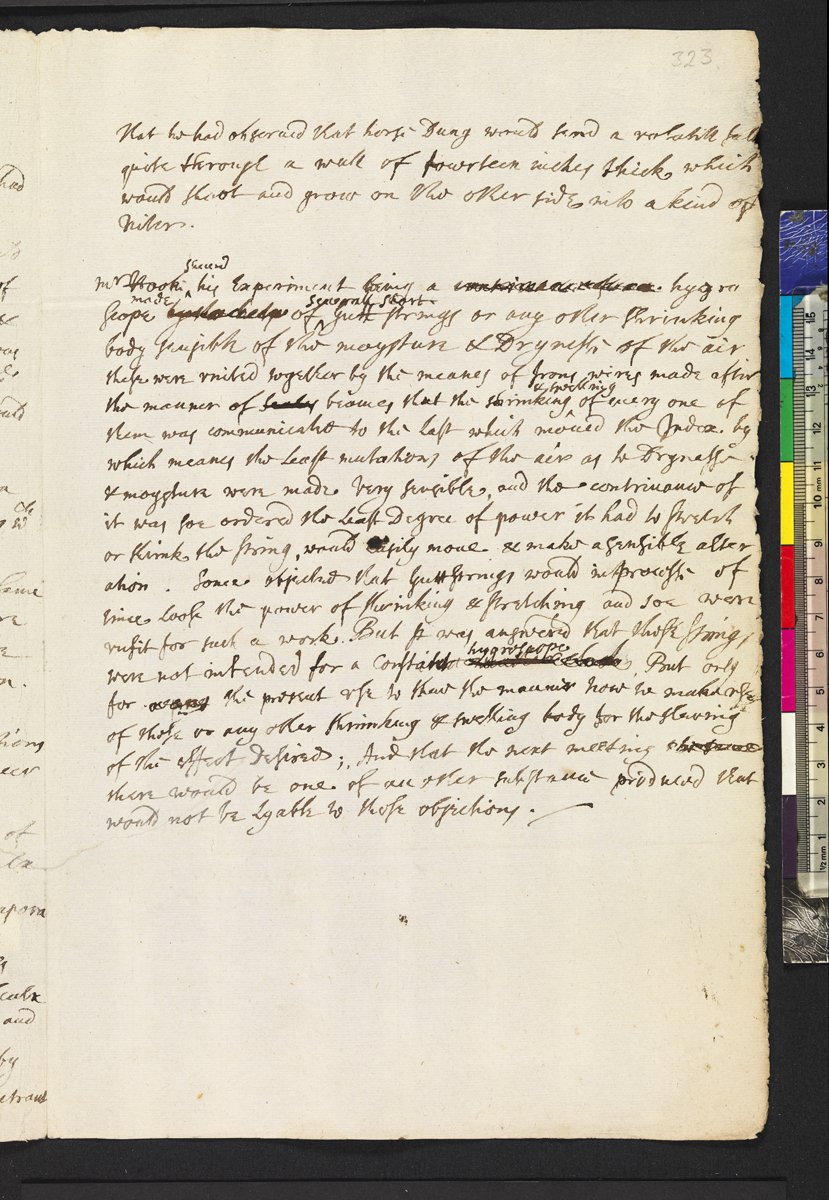 323
that he had obserued that horse Dung would send a volatill salt
quite through a wall of fowerteen inches thick, which
would shoot and grow on the other side into a kind of
niter.
second
mr Hook his Experiment being a hygro
made severall short
scope of Gutt strings or any other shrinking
body sensible of the moysture & Drynesse of the air
these were united together by the meanes of Irons wires made after
& swelling
the manner of beames that the shrinking of euery one of
them was communicated to the last which moued the Index. by
which means the least mutations of the air as to Drynesse
& moysture were made very sensible, and the contrivance of
it was soe ordered the least Degree of power it had to stretch
or shrink the string, would easily moue & make a sensible alter
ation. Some objected that Guttstrings would in processe of
time loose the power of shrinking & stretching and soe were
unfit for such a work. But it was answered that those strings
hygroscope
were not intended for a Constant But only
for the present use to shew the manner how to make use
of those or any other shrinking & swelling body for the shewing
of the effect Desired; And that the next meeting
there would be one of an other substance produced that
would not be lyable to those objections.
had
of
&
of
and
by